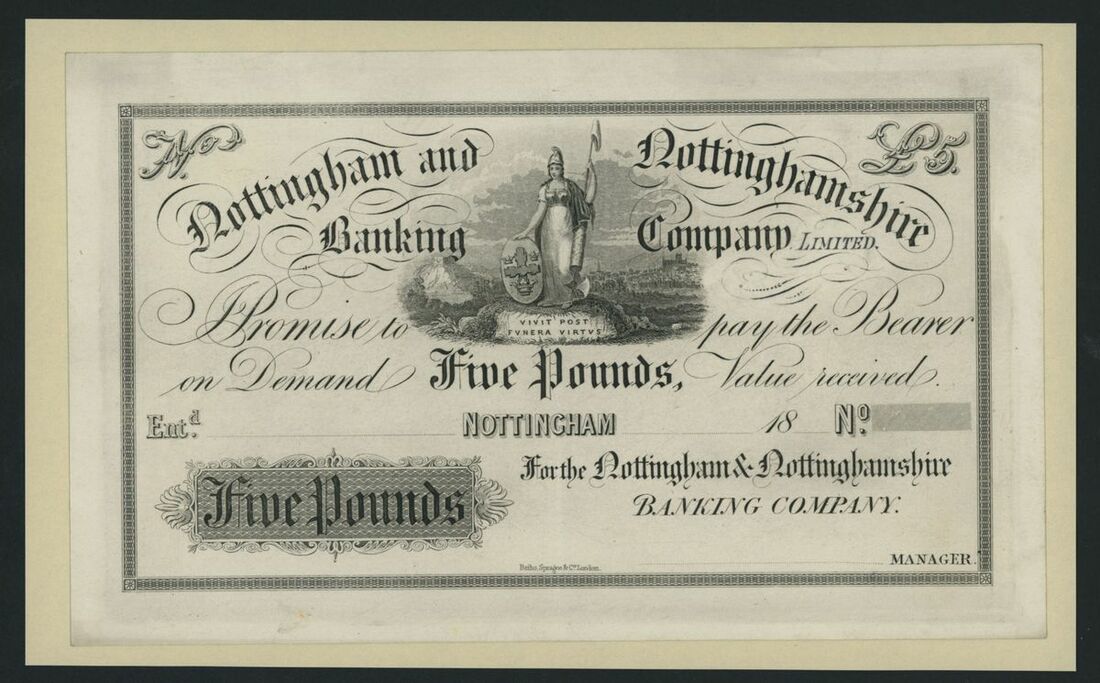 No. £5.
Nottingham and Nottinghamshire
Banking Company LIMITED.
VIVIT POST
FVNERA VIRTVS
I Promise to pay the Bearer
on Demand Five Pounds, Value received.
Ent.d NOTTINGHAM 18 No.
For the Nottingham & Nottinghamshire
BANKING COMPANY.
Five Pounds
MANAGER.
Batho, Sprague & Co. London.